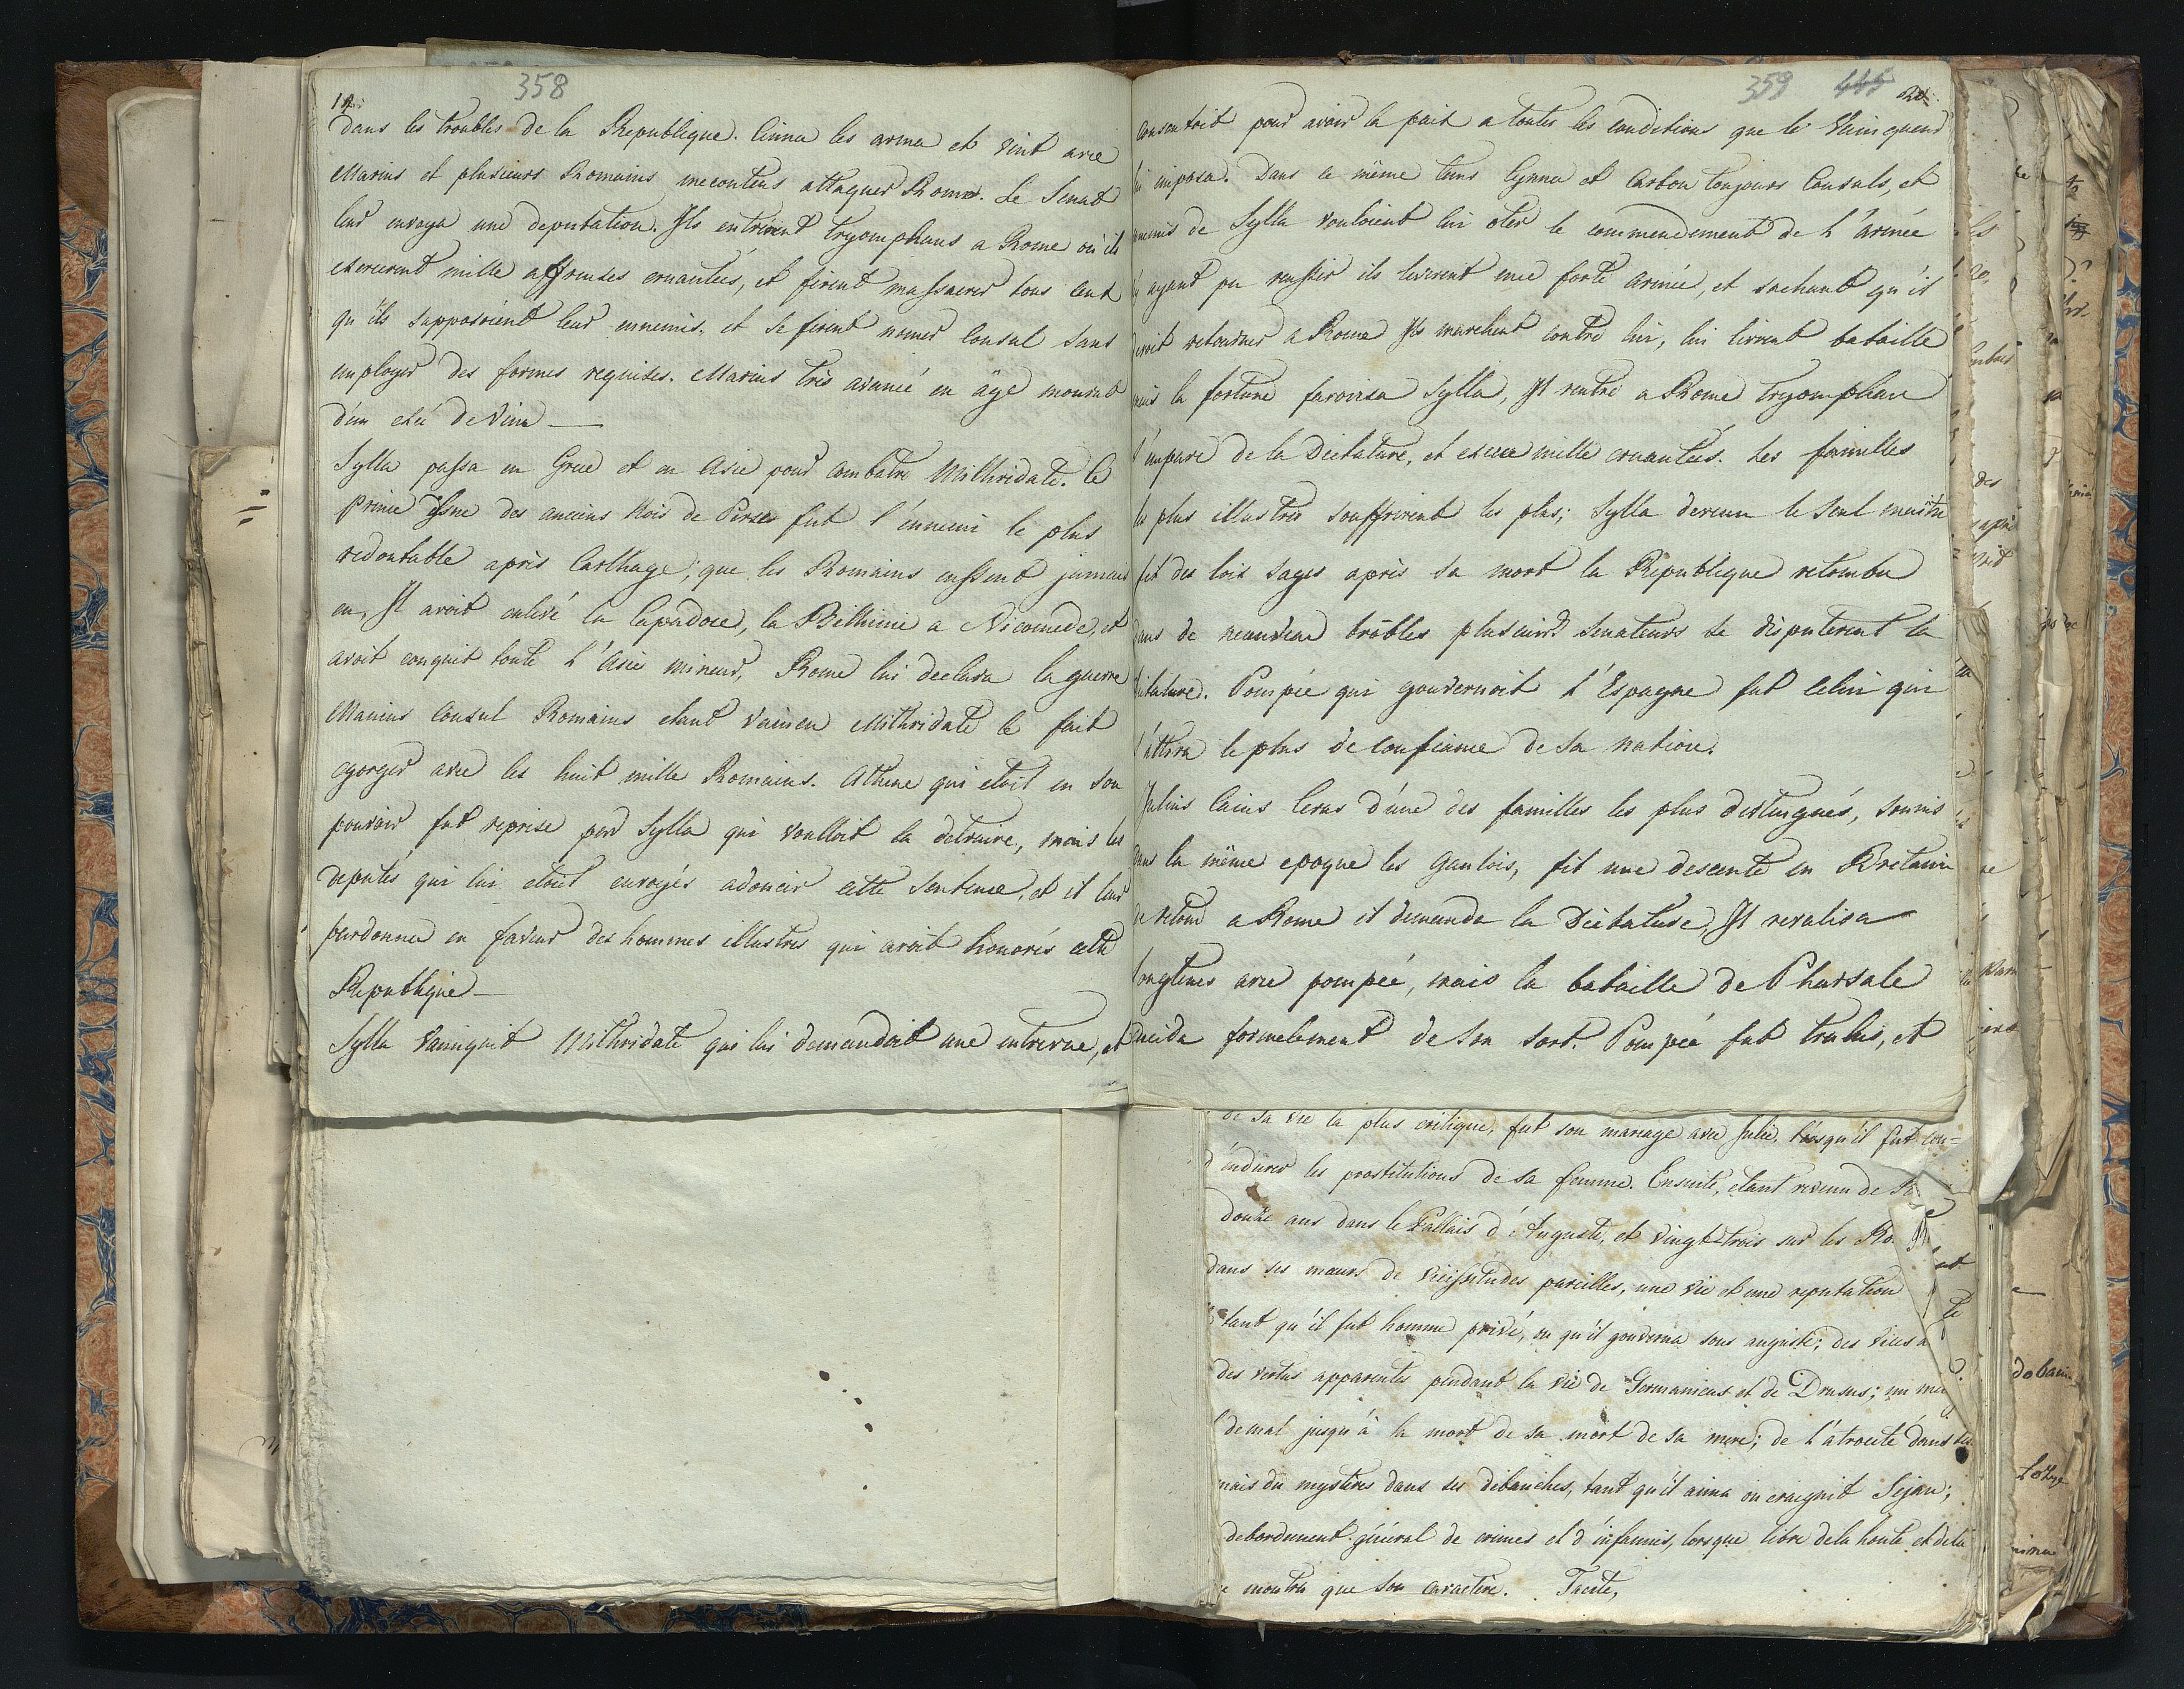 358
dans les troubles de la Republique. Cinna les arma et vint avec
Marius et plusieurs Romains mecontens attaquer Rome. Le Senat
leur envoya une deputation. Ils entrerent tryomphans a Rome où ils
exercerent mille affreuses cruautées, et firent massacrer tous ceux
qu'ils supposoient leur ennemis. et se firent nomer Consul sans
employer des formes requises. Marius très avancé en âge mourut
d'un excé de Vin —
Sylla passa en Grece et en Asie pour combatre Mithridate. Ce
Prince issue des anciens Rois de Perses fut l'énnemi le plus
redoutable après Carthage, que les Romains eussent jamais
eu, Il avoit enlevé la Capadoce, la Bithinie a Nicomede, et
avoit conquit toute l'Asie mineur, Rome lui declara la guerre
Manius Consul Romains etant vaincu Mithridate le fait
egorger avec les huit mille Romains. Athene qui etoit en son
pouvoir fut reprise par Sylla qui voulloit la detruire, mais les
deputés qui lui etoit envoyés adoucir cette sentence, et il leur
pardonna en faveur des hommes illustres qui avoit honorés cette
Republique —
Sylla vainquit Mithridate qui lui demandoit une entrevue, et
359 445
consentoit pour avoir la paix a toutes les conditions que le Vainqueur
lui imposa. Dans ce même tems Cynna et Carbon toujours Consuls, et
ennemis de Sylla vouloient lui oter le commendement de l'armée
n'y ayant pu reussir ils leverent une forte armée, et sachant qu'il
devoit retourner a Rome Ils marchent contre lui, lui livrent bataille
mais la fortune favorisa Sylla, Il rentre a Rome tryomphan
s'empare de la Dictature, et exerce mille cruautées. Les familles
les plus illustres souffrirent les plus; Sylla devenu le seul maitre
fit des loix sages après sa mort la Republique retomba
dans de nouveau trôbles plusieurs Senateurs se disputerent la
dictature. Pompée qui gouvernoit l'Espagne fut celui qui
s'attira le plus de confiance de sa nation.
Julius Caius Cesar d'une des familles les plus distingués, soumis
dans la même epoque les Gaulois, fit une descente en Bretanie
de retour a Rome il demanda la Dictature, Il revalisa
longtemes avec pompée, mais la bataille de Pharsale
decida formelement de son sort. Pompée fut trahis, et
de sa vie la plus critique, fut son mariage avec Julie, lorsqu'il fut con=
d'endurer les prostitutions de sa femme. Ensuite, etant revenu de
douze ans dans le Pallais d'Auguste, et vingt-trois sur les Ro
dans ses mœurs de vicissitudes pareilles, une vie et une reputation
tant qu'il fut homme privé, ou qu'il gouverna sous auguste; des vices
des vertus apparentes pendant la vie de Germanicus et de Drusus; un
de mal jusqu'à la mort de sa mort de sa mere; de l'atrocité dans
mais du mysteres dans ses débauches, tant qu'il aima ou craignit Sejan;
debordement général de crimes et d'infamies, lorsque libre de la honte et de la
montra que son caractère. Tacite,